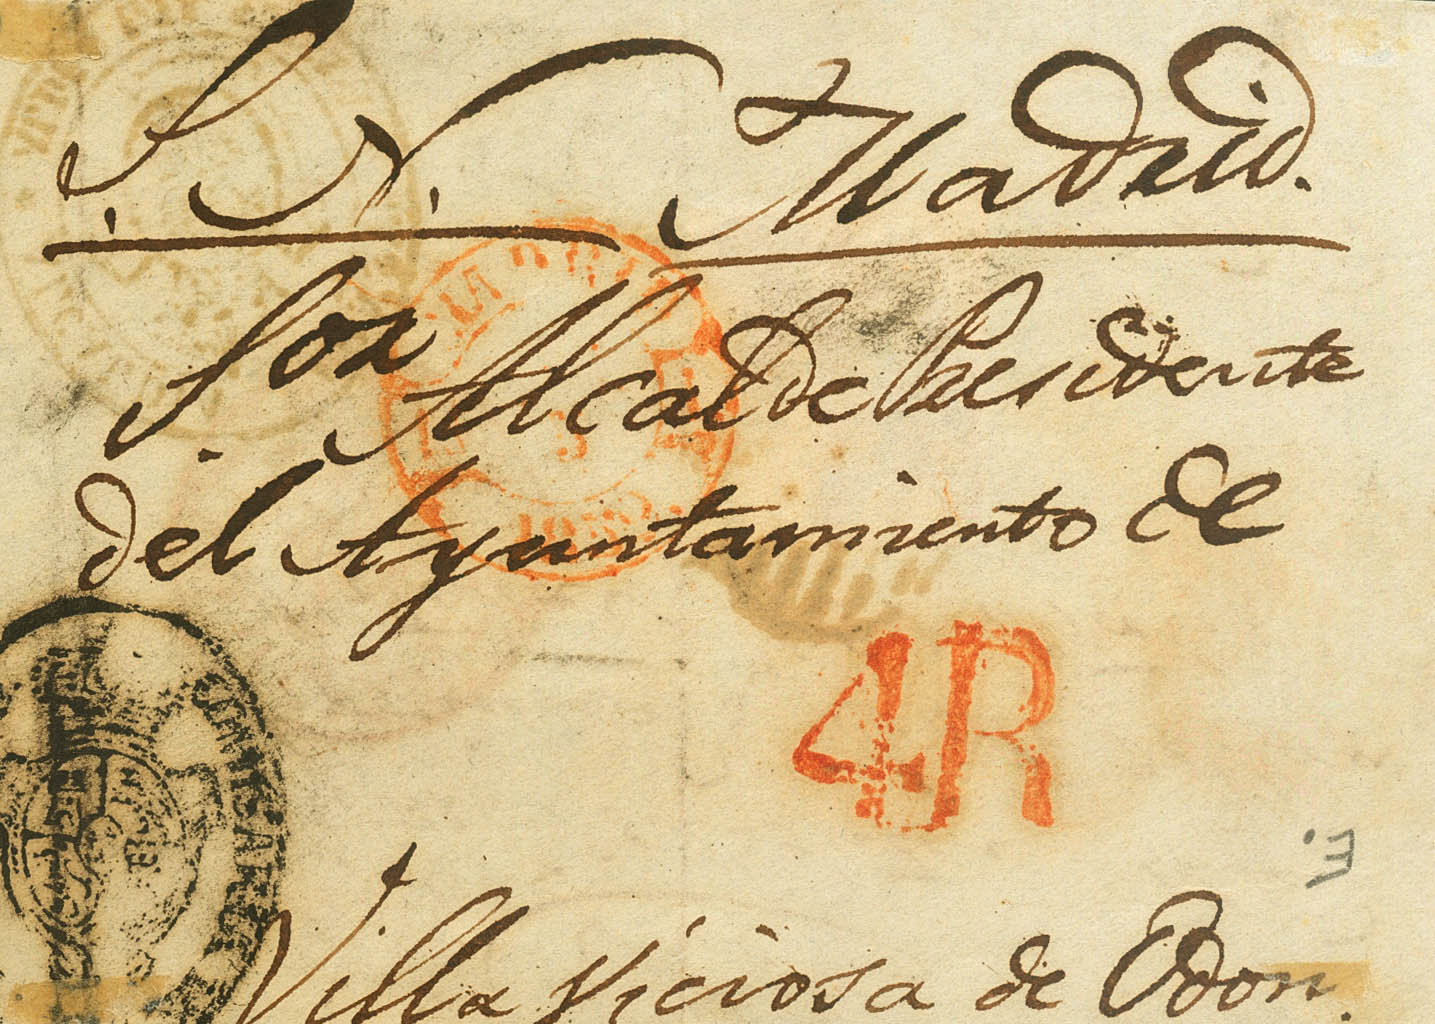 S. N. Madrid.
Sor Alcalde Presidente
del Ayuntamiento de
4R
Villaviciosa de Odon.